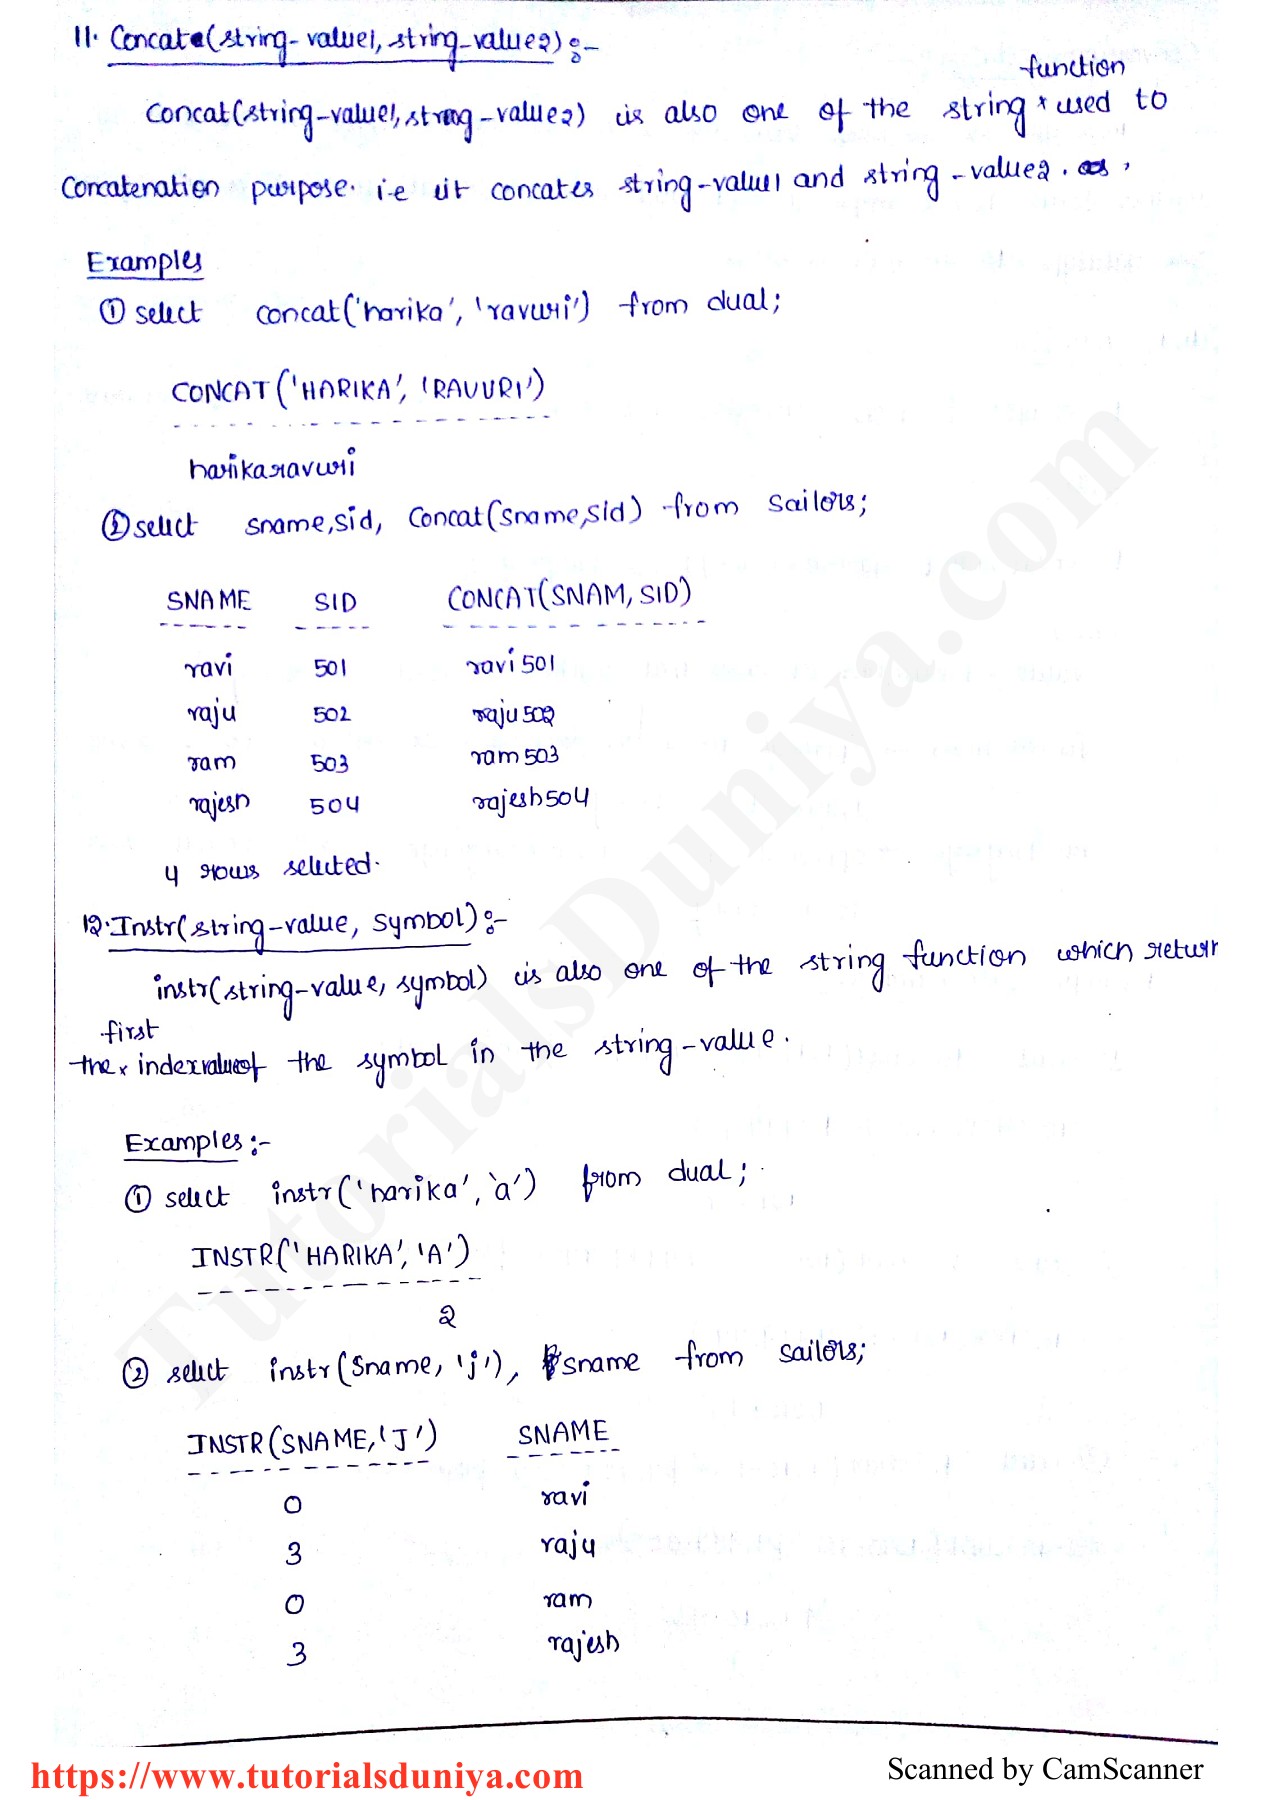 11. Concate(string-value1, string-value2):-
function
Concat(string-value1, string-value2) is also one of the string x used to
Concatenation purpose. i.e it concates string-value1 and string-value2.
Examples
① select concat('harika', 'ravuri') from dual;
CONCAT('HARIKA', 'RAVURI')
harikaravuri
② select sname,sid, Concat(sname,sid) from sailors;
SNAME SID CONCAT(SNAM, SID)
ravi 501 ravi501
raju 502 raju502
ram 503 ram503
rajesh 504 rajesh504
4 rows selected.
12. Instr(string-value, symbol):-
instr(string-value, symbol) is also one of the string function which return
first
the x indexvalueof the symbol in the string-value.
Examples:-
① select instr('harika', 'a') from dual;
INSTR('HARIKA', 'A')
2
② select instr(sname, 'j'), sname from sailors;
INSTR(SNAME, 'J') SNAME
0 ravi
3 raju
0 ram
3 rajesh
TutorialsDuniya.com
https://www.tutorialsduniya.com Scanned by CamScanner